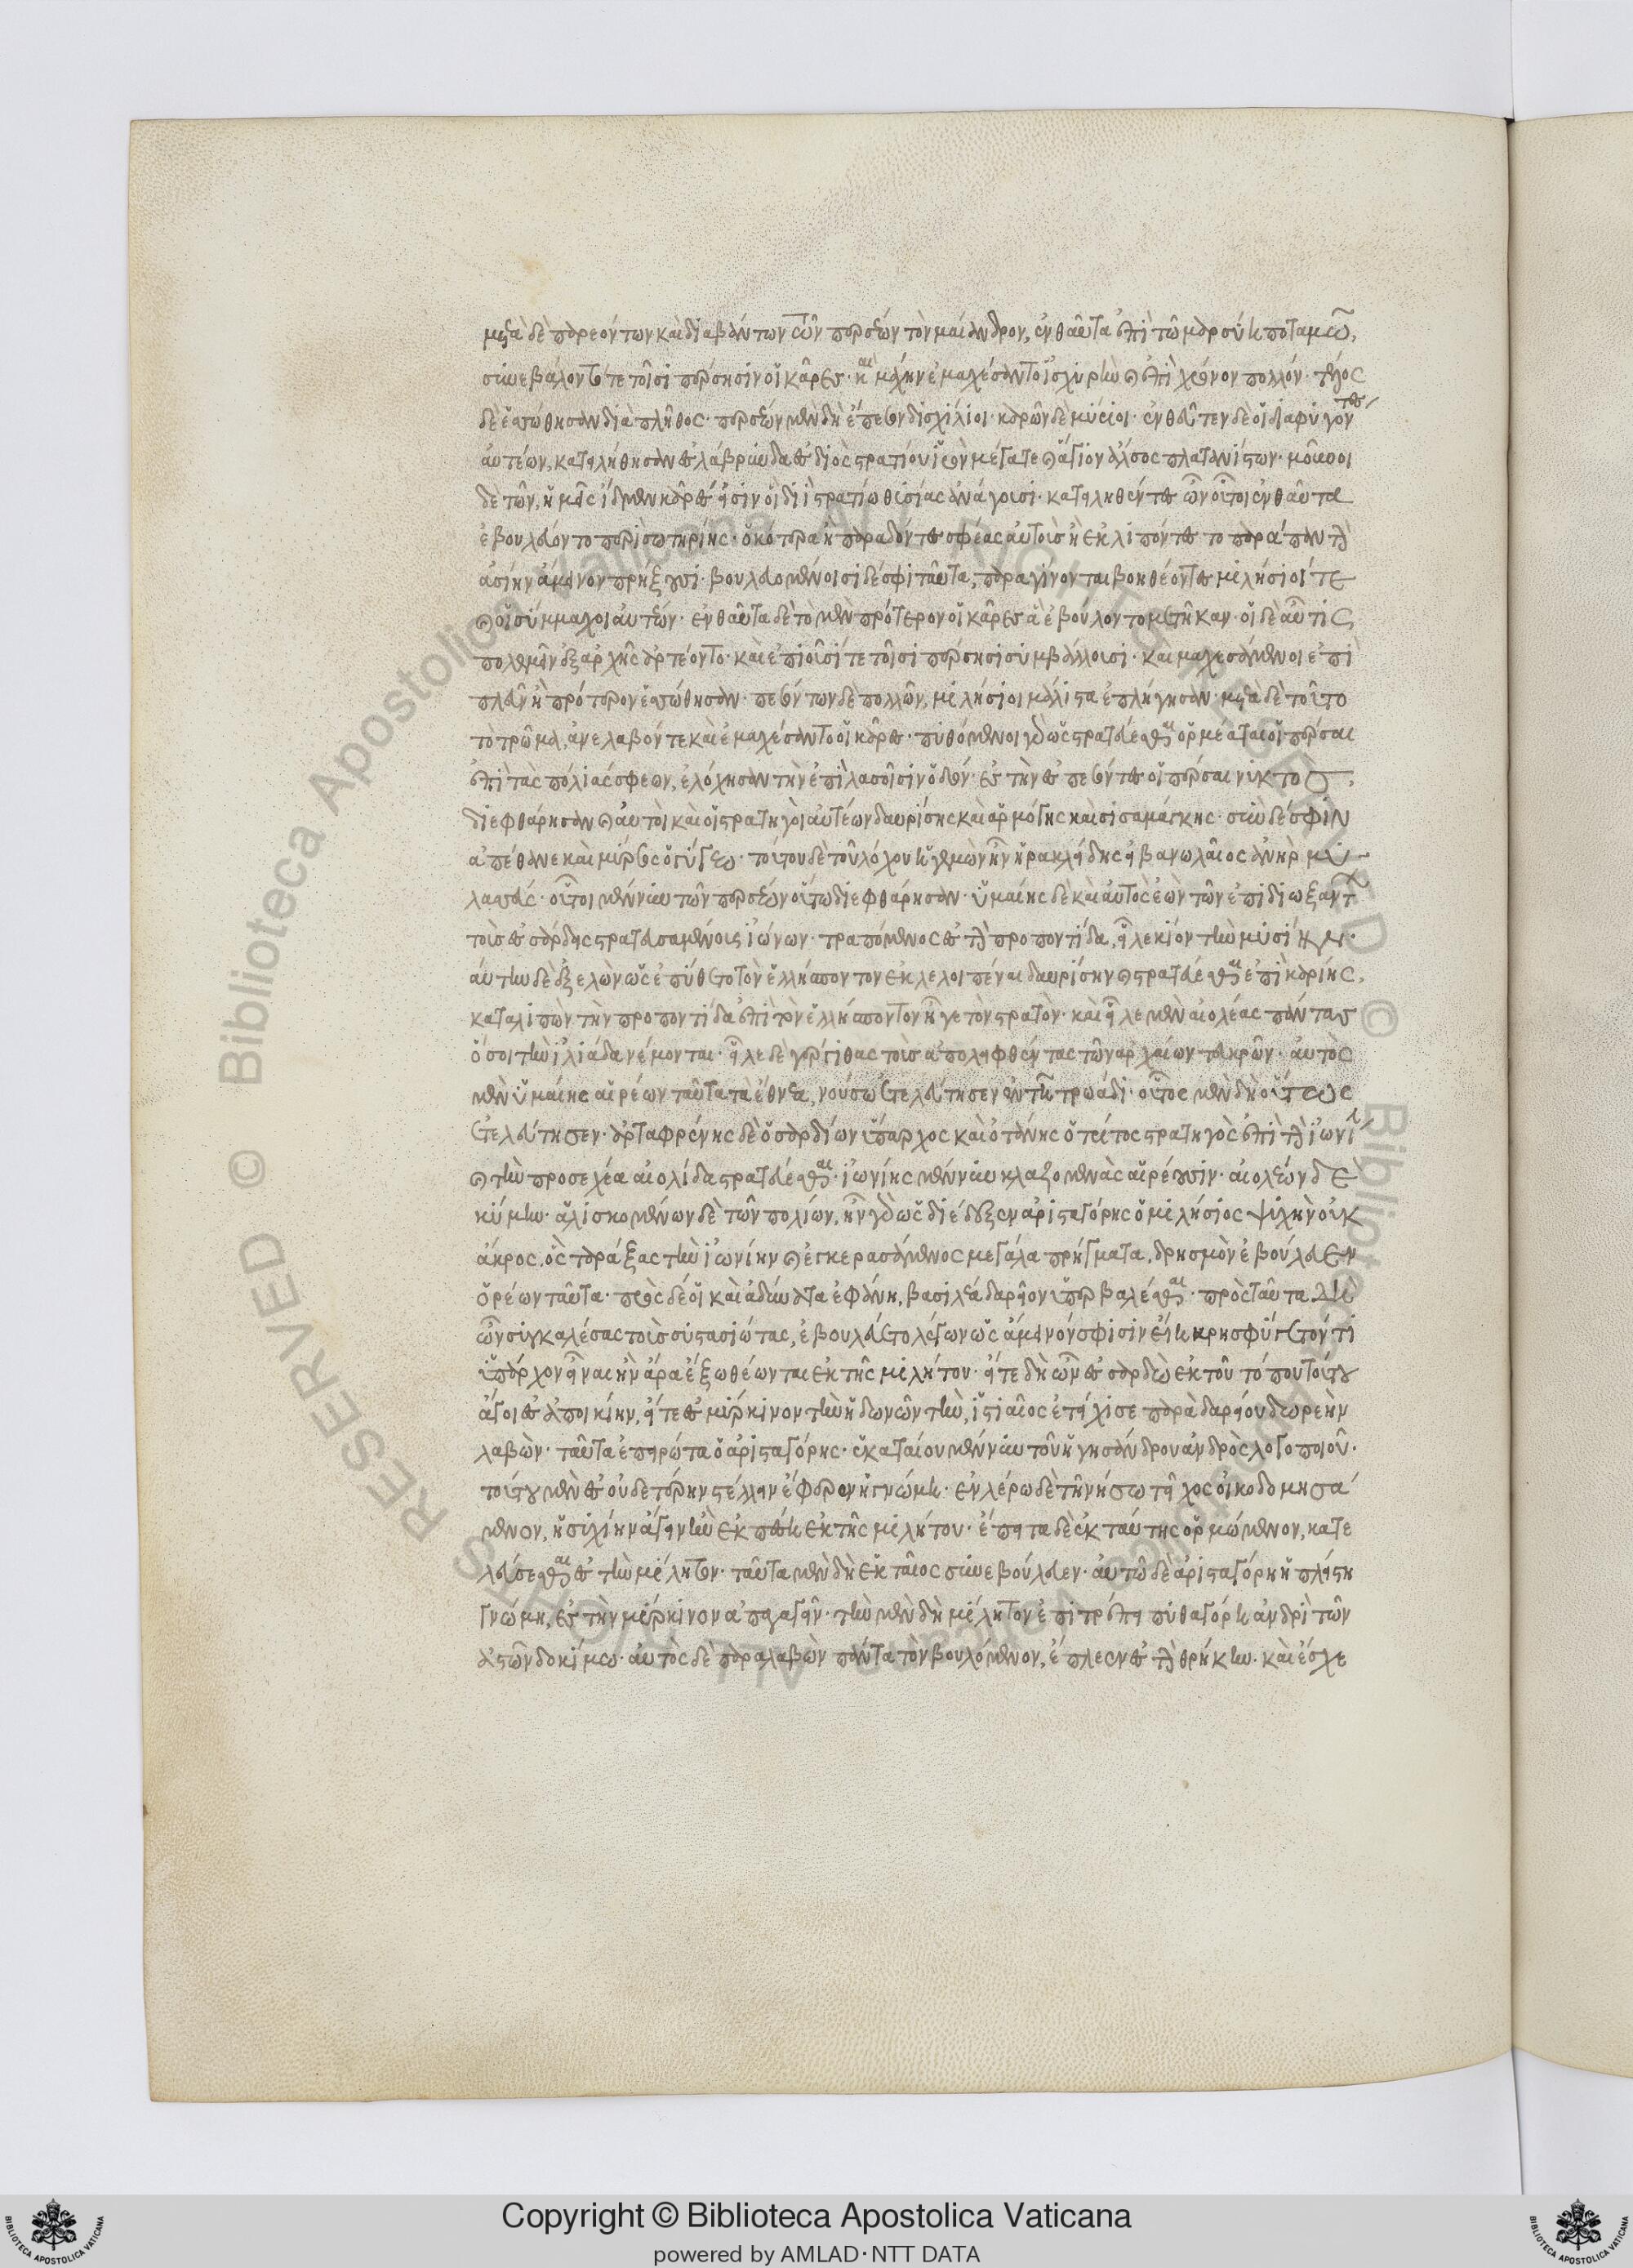 μετὰ δὲ παρεόντων καὶ διαβάντων τῶν περσέων τὸν μαίανδρον, ἐνθαῦτα ἐπὶ τῷ μαρσύῃ ποταμῷ,
συνεβάλοντό τε τοῖσι πέρσησιν οἱ κᾶρες· καὶ μάχην ἐμαχέσαντο ἰσχυρὴν καὶ ἐπὶ χρόνον πολλόν· τέλος
δὲ ἑσσώθησαν διὰ πλῆθος· περσέων μὲν δὴ ἔπεσον δισχίλιοι· καρῶν δὲ μύριοι· ἐνθεῦτεν δὲ οἱ διαφυγόντες
αὐτέων, κατειλήθησαν ἐς λάβραυνδα ἐς διὸς στρατίου ἱρὸν μέγα τε καὶ ἅγιον ἄλσος πλατανίστων· μοῦνοι
δὲ τῶν ἡμεῖς ἴδμεν κᾶρές εἰσιν οἳ διὶ στρατίῳ θυσίας ἀνάγουσι· κατειληθέντες ὦν οὗτοι ἐνθαῦτα
ἐβουλεύοντο περὶ σωτηρίης· ὁκότερα ἢ παραδόντες σφέας αὐτοὺς ἢ ἐκλιπόντες τὸ παράπαν τὴν
ἀσίην ἄμεινον πρήξουσι· βουλευομένοισι δέ σφι ταῦτα, παραγίνονται βοηθέοντες μιλήσιοί τε
καὶ οἱ σύμμαχοι αὐτέων· ἐνθαῦτα δὲ τὸ μὲν πρότερον οἱ κᾶρες ἃ ἐβούλοντο μετῆκαν· οἱ δὲ αὖτις
πολεμεῖν ἐξ ἀρχῆς ἀρτέοντο· καὶ ἐπιοῦσί τε τοῖσι πέρσησι συμβάλλουσι· καὶ μαχεσάμενοι ἐπὶ
πλεῦν ἢ πρότερον ἑσσώθησαν· πεσόντων δὲ πολλῶν, μιλήσιοι μάλιστα ἐπλήγησαν· μετὰ δὲ τοῦτο
τὸ τρῶμα, ἀνέλαβόν τε καὶ ἐμαχέσαντο οἱ κᾶρες· πυθόμενοι γὰρ ὡς στρατεύεσθαι ὁρμέαται οἱ πέρσαι
ἐπὶ τὰς πόλιας σφέων, ἐλόχησαν τὴν ἐπὶ λασοῖσιν ὁδόν· ἐς τὴν ἐσπεσόντες οἱ πέρσαι νυκτὸς,
διεφθάρησαν καὶ αὐτοὶ καὶ οἱ στρατηγοὶ αὐτέων δαυρίσης καὶ ἀμόργης καὶ σισαμάκης· σὺν δέ σφιν
ἀπέθανε καὶ μύρσος ὁ γύγεω· τούτου δὲ τοῦ λόχου ἡγεμὼν ἦν ἡρακλείδης ἰβανωλλιος ἀνὴρ μυ
λασεύς· οὗτοι μέν νυν τῶν περσέων οὕτω διεφθάρησαν· ὑμαίης δὲ καὶ αὐτὸς ἐὼν τῶν ἐπιδιωξάντων
τοὺς ἐς σάρδις στρατευσαμένους ἰώνων· τραπόμενος ἐς τὴν προποντίδα, εἷλε κίον τὴν μυσίην·
ταύτην δὲ ἐξελὼν ὡς ἐπύθετο τὸν ἑλλήσποντον ἐκλελοιπέναι δαυρίσην καὶ στρατεύεσθαι ἐπὶ καρίης,
καταλιπὼν τὴν προποντίδα ἐπὶ τὸν ἑλλήσποντον ἦγε τὸν στρατόν· καὶ εἷλε μὲν αἰολέας πάντας
ὅσοι τὴν ἰλιάδα νέμονται· εἷλε δὲ γέργιθας τοὺς ἀπολειφθέντας τῶν ἀρχαίων τευκρῶν· αὐτὸς
μὲν ὑμαίης αἱρέων ταῦτα τὰ ἔθνεα, νούσῳ τελευτήσεν ἐν τῇ τρωάδι· οὗτος μὲν δὴ οὕτως
ἐτελεύτησεν· ἀρταφρένης δὲ ὁ σαρδίων ὕπαρχος καὶ ὀτάνης ὁ τρίτος στρατηγὸς ἐπὶ τὴν ἰωνίην
καὶ τὴν προσεχέα αἰολίδα στρατεύεσθαι· ἰωνίης μέν νυν κλαζομενὰς αἱρέουσιν· αἰολέων δὲ
κύμην· ἁλισκομένων δὲ τῶν πολίων, ἦν γὰρ ὡς διέδεξεν ἀρισταγόρης ὁ μιλήσιος ψυχὴν οὐκ
ἄκρος, ὃς ταράξας τὴν ἰωνίην καὶ ἐγκερασάμενος μεγάλα πρήγματα, δρησμὸν ἐβούλευεν
ὁρέων ταῦτα· πρὸς δέ οἱ καὶ ἀδύνατα ἐφάνη, βασιλέα δαρεῖον ὑπερβαλέσθαι· πρὸς ταῦτα δὴ
ὦν συγκαλέσας τοὺς συστασιώτας, ἐβουλεύετο λέγων ὡς ἄμεινόν σφισιν εἴη κρησφύγετόν τι
ὑπάρχον εἶναι ἢν ἄρα ἐξωθέωνται ἐκ τῆς μιλήτου· εἴτε δὴ ὦν ἐς σαρδὼ ἐκ τοῦ τόπου τούτου
ἄγοι ἐς ἀποικίην, εἴτε ἐς μύρκινον τὴν ἠδωνῶν τὴν, ἱστιαῖος ἐτείχισε παρὰ δαρείου δωρεὴν
λαβών· ταῦτα ἐπειρώτα ὁ ἀρισταγόρης· ἑκαταίου μέν νυν τοῦ ἡγησάνδρου ἀνδρὸς λογοποιοῦ·
τούτου μὲν ἐς οὐδετέρην στέλλειν ἔφερεν ἡ γνώμη· ἐν λέρῳ δὲ τῇ νήσῳ τεῖχος οἰκοδομησά
μενον, ἡσυχίην ἄγειν ἢν ἐκπέσῃ ἐκ τῆς μιλήτου· ἔπειτα δὲ ἐκ ταύτης ὁρμώμενον, κατε
λεύσεσθαι ἐς τὴν μίλητον· ταῦτα μὲν δὴ ἑκαταῖος συνεβούλευεν· αὐτῷ δὲ ἀρισταγόρῃ ἡ πλείστη
γνώμη, ἐς τὴν μύρκινον ἀπαγαγεῖν· τὴν μὲν δὴ μίλητον ἐπιτρέπει πυθαγόρῃ ἀνδρὶ τῶν
ἀστῶν δοκίμῳ· αὐτὸς δὲ παραλαβὼν πάντα τὸν βουλόμενον, ἔπλεεν ἐς τὴν θρηίκην· καὶ ἔσχε
Copyright © Biblioteca Apostolica Vaticana
powered by AMLAD·NTT DATA